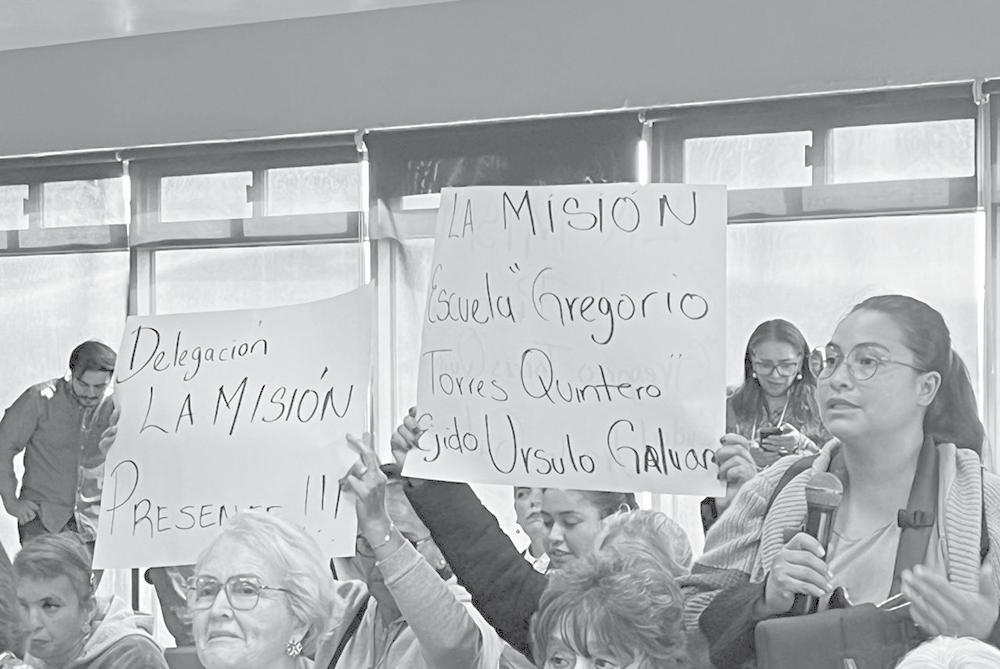 Delegación
LA MISIÓN
PRESENTE !!!
LA MISIÓN
Escuela "Gregorio
Torres Quintero"
Ejido Ursulo Galvan